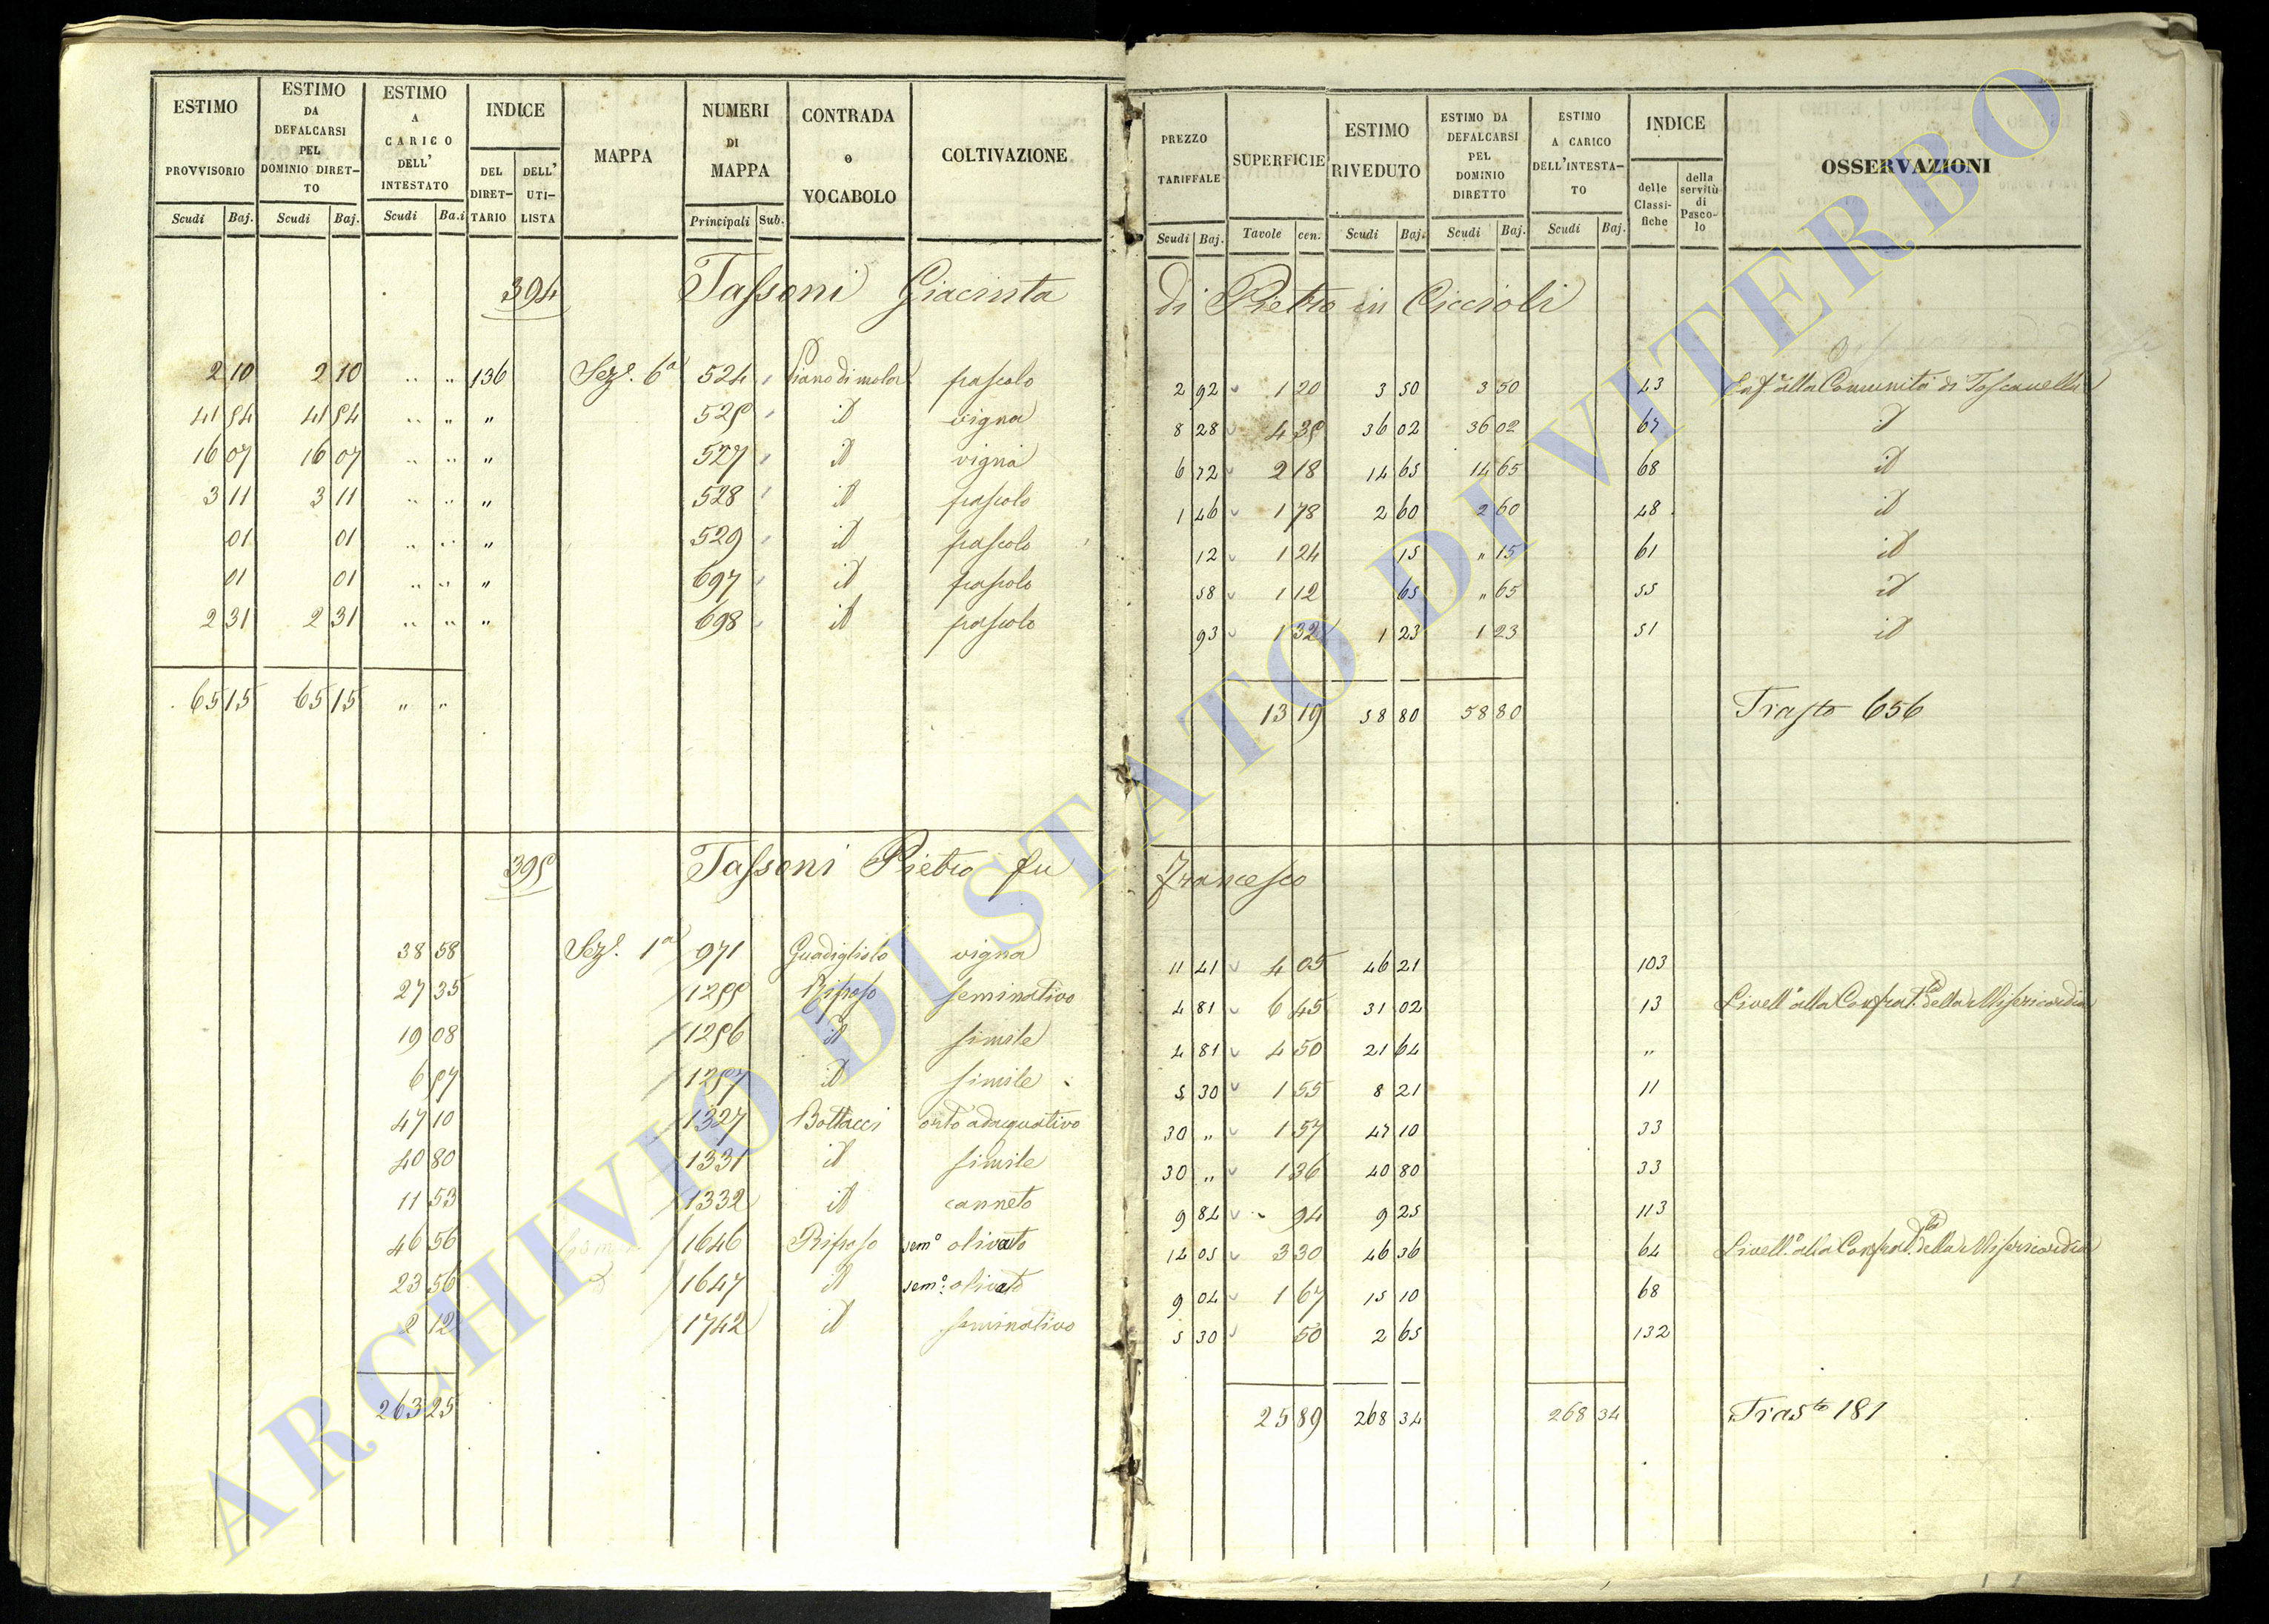 ESTIMO PROVVISORIO Scudi Baj.
ESTIMO DA DEFALCARSI PEL DOMINIO DIRET-TO Scudi Baj.
ESTIMO A CARICO DELL' INTESTATO Scudi Ba.i
INDICE DEL DIRET-TARIO DELL' UTI-LISTA
MAPPA
NUMERI DI MAPPA Principali Sub.
CONTRADA o VOCABOLO
COLTIVAZIONE
PREZZO TARIFFALE Scudi Baj.
SUPERFICIE Tavole cen.
ESTIMO RIVEDUTO Scudi Baj.
ESTIMO DA DEFALCARSI PEL DOMINIO DIRETTO Scudi Baj.
ESTIMO A CARICO DELL'INTESTA-TO Scudi Baj.
INDICE delle Classi-fiche della servitù di Pasco-lo
OSSERVAZIONI
394 Tassoni Giacinta di Pietro in Ciccioli
2 10 2 10 " " 136 Sez.e 6a 524 Piano di mola pascolo 2 92 1 20 3 50 3 50 43 alla Comunità di Toscanella
41 54 41 54 " " " 525 id vigna 8 28 4 35 36 02 36 02 67 id
16 07 16 07 " " " 527 id vigna 6 72 2 18 14 65 14 65 68 id
3 11 3 11 " " " 528 id pascolo 1 46 1 78 2 60 2 60 48 id
01 01 " " " 529 id pascolo 12 1 24 15 " 15 61 id
01 01 " " " 697 id pascolo 58 1 12 65 " 65 55 id
2 31 2 31 " " " 698 id pascolo 93 1 32 1 23 1 23 51 id
65 15 65 15 " " 13 19 58 80 58 80 Trasto 656
395 Tassoni Pietro fu Francesco
38 58 Sez.e 1a 971 Guadigliolo vigna 11 41 4 05 46 21 103
27 35 1255 Riposo seminativo 4 81 6 45 31 02 13 Livell.o alla Confrat.ta della Misericordia
19 08 1256 id simile 4 81 4 50 21 64 "
6 57 1257 id simile 5 30 1 55 8 21 11
47 10 1327 Bottacci orto adacquativo 30 " 1 57 47 10 33
40 80 1331 id simile 30 " 1 36 40 80 33
11 53 1332 id canneto 9 84 " 94 9 25 113
46 56 1646 Riposo sem.o olivato 14 05 3 30 46 36 64 Livell.o alla Confrat.ta della Misericordia
23 56 1647 id sem.o olivato 9 04 1 67 15 10 68
2 12 1742 id seminativo 5 30 50 2 65 132
263 25 25 89 268 34 268 34 Trasto 181
ARCHIVIO DI STATO DI VITERBO